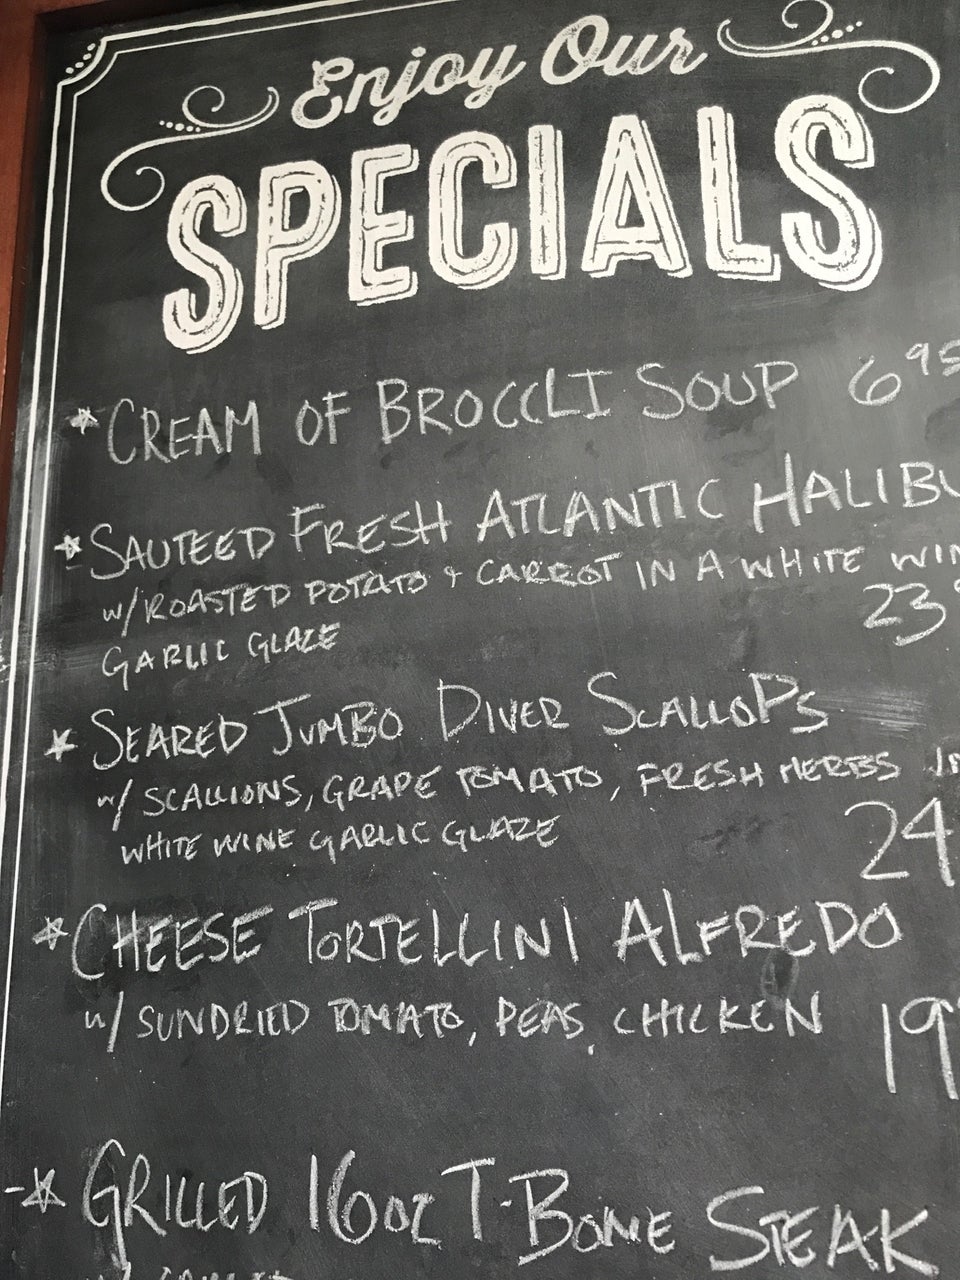 Enjoy Our
SPECIALS
* CREAM OF BROCCLI SOUP 6 95
* SAUTEED FRESH ATLANTIC HALIBU
w/ ROASTED POTATO + CARROT IN A WHITE WIN
GARLIC GLAZE 23
* SEARED JUMBO DIVER SCALLOPS
w/ SCALLIONS, GRAPE TOMATO, FRESH HERBS IN
WHITE WINE GARLIC GLAZE 24
* CHEESE TORTELLINI ALFREDO
w/ SUNDRIED TOMATO, PEAS, CHICKEN 19
-* GRILLED 16oz T-BONE STEAK
w/